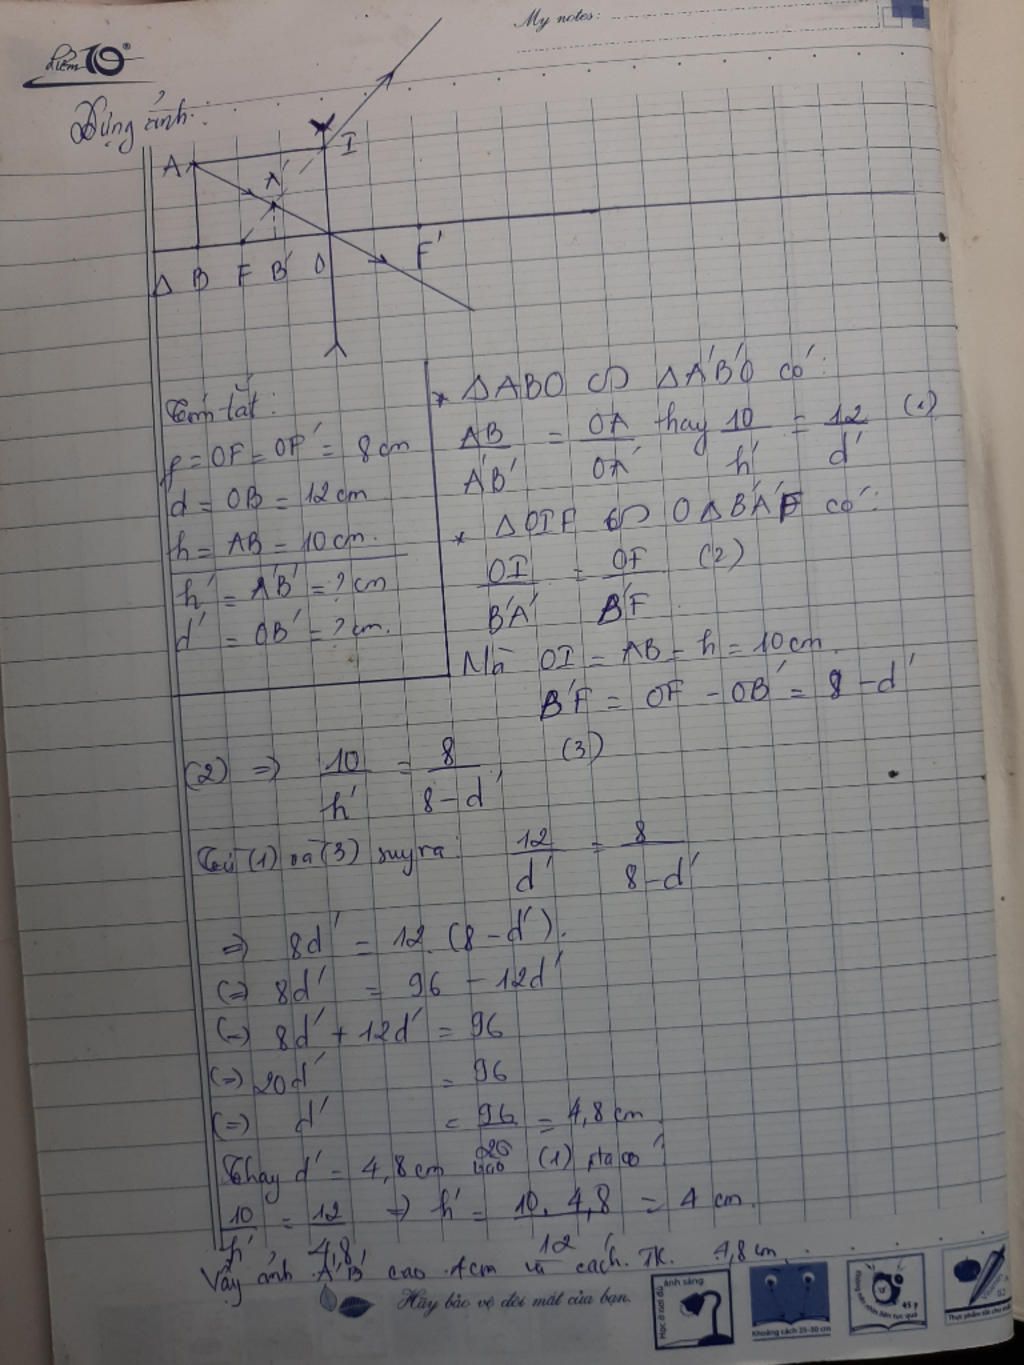 My notes:
điểm 10
Dựng ảnh:
A
A'
I
Δ B F B' O F'
Tóm tắt:
f = OF = OF' = 8 cm
d = OB = 12 cm
h = AB = 10 cm.
h' = A'B' = ? cm
d' = OB' = ? cm.
* ΔABO ∽ ΔA'B'O có:
AB/A'B' = OA/OA' hay 10/h' = 12/d' (1)
* ΔOIF ∽ ΔB'A'F có:
OI/B'A' = OF/B'F (2)
Mà OI = AB = h = 10 cm.
B'F = OF - OB' = 8 - d'
(2) => 10/h' = 8/8-d' (3)
Từ (1) và (3) suy ra: 12/d' = 8/8-d'
=> 8d' = 12.(8-d').
(=) 8d' = 96 - 12d'
(=) 8d' + 12d' = 96
(=) 20d' = 96
(=) d' = 96/20 = 4,8 cm
Thay d' = 4,8 cm vào (1) ta có
10/h' = 12/4,8 => h' = 10.4,8/12 = 4 cm.
Vậy ảnh A'B' cao 4cm và cách TK 4,8 cm.
Hãy bảo vệ đôi mắt của bạn.
Học ở nơi đủ ánh sáng
Khoảng cách 25-30 cm
45 p